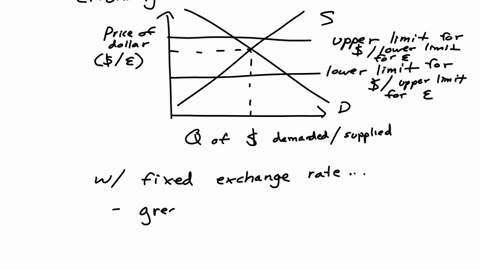 S
Price of
dollar
($/£)
upper limit for
$/lower limit
for £
lower limit for
$/upper limit
for £
D
Q of $ demanded/supplied
w/ fixed exchange rate...
- gre